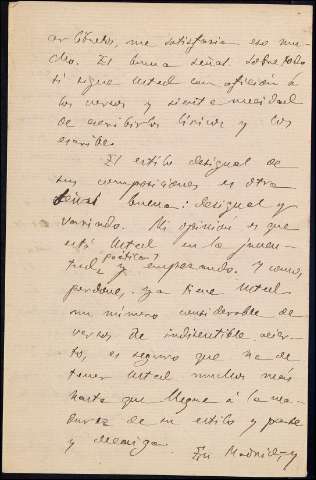 ar libretos, me satisfaria eso mu-
cho. Es buena señal sobre todo
si sigue Usted con aficion à
los versos y siente necesidad
de escribirlos liricos y los
escribe.
El estilo desigual de
sus composiciones es otra
señal buena: desigual y
variado. Mi opinión es que
está Usted en la juven-
tud poética? y empezando. Y como,
perdone, ya tiene Usted
un número considerable de
versos de indiscutible acier-
to, es seguro que ha de
tener Usted muchos más
hasta que llegue à la ma-
durez de su estilo y parte
y demiga.
En Madrid, y